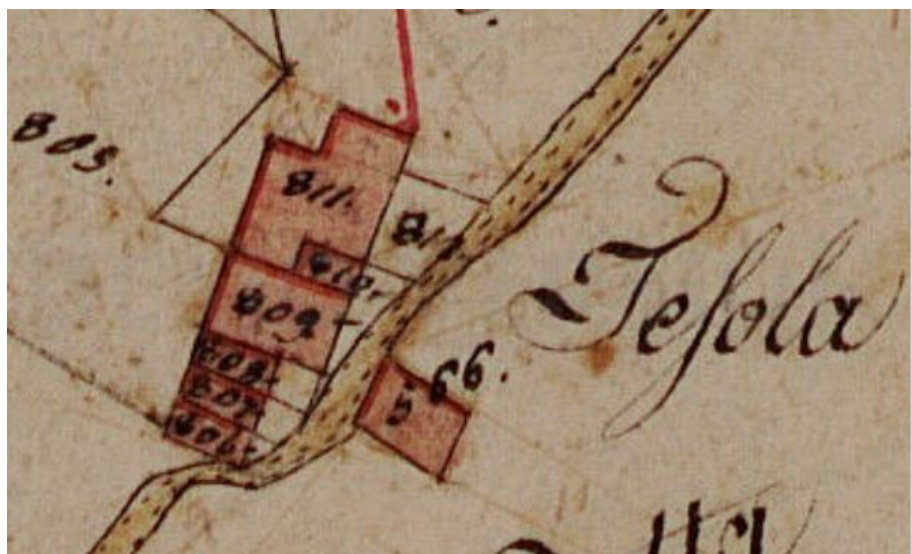 805.
811.
811
810.
809.
808.
807.
806.
566.
Teſola